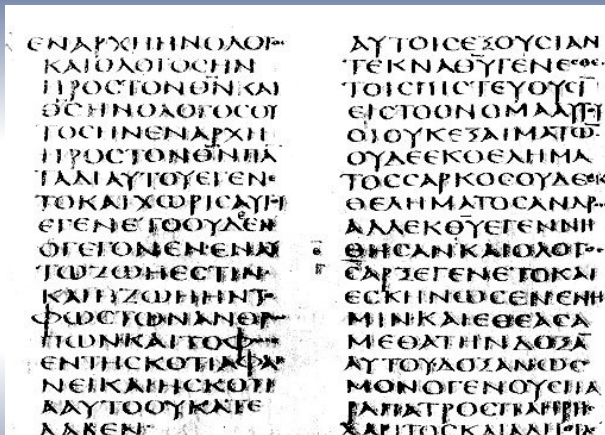 ΕΝΑΡΧΗΗΝΟΛΟΓΟϹ
ΚΑΙΟΛΟΓΟϹΗΝ
ΠΡΟϹΤΟΝΘ̅Ν̅ΚΑΙ
Θ̅Ϲ̅ΗΝΟΛΟΓΟϹΟΥ
ΤΟϹΗΝΕΝΑΡΧΗ
ΠΡΟϹΤΟΝΘ̅Ν̅ΠΑ
ΤΑΔΙΑΥΤΟΥΕΓΕΝΕ
ΤΟΚΑΙΧΩΡΙϹΑΥΤΟΥ
ΕΓΕΝΕΤΟΟΥΔΕΝ
ΟΓΕΓΟΝΕΝΕΝΑΥ
ΤΩΖΩΗΕϹΤΙΝ
ΚΑΙΗΖΩΗΗΝΤΟ
ΦΩϹΤΩΝΑΝΘΡΩ
ΠΩΝΚΑΙΤΟΦΩϹ
ΕΝΤΗϹΚΟΤΙΑΦΑΙ
ΝΕΙΚΑΙΗϹΚΟΤΙ
ΑΑΥΤΟΟΥΚΑΤΕ
ΛΑΒΕΝ
ΑΥΤΟΙϹΕΞΟΥϹΙΑΝ
ΤΕΚΝΑΘ̅Υ̅ΓΕΝΕϹΘΕ
ΤΟΙϹΠΙϹΤΕΥΟΥϹΙ̅
ΕΙϹΤΟΟΝΟΜΑΑΥΤΟΥ
ΟΙΟΥΚΕΞΑΙΜΑΤΩ̅
ΟΥΔΕΕΚΘΕΛΗΜΑ
ΤΟϹϹΑΡΚΟϹΟΥΔΕΕΚ
ΘΕΛΗΜΑΤΟϹΑΝΔΡΟϹ
ΑΛΛΕΚΘ̅Υ̅ΕΓΕΝΝΗ
ΘΗϹΑΝΚΑΙΟΛΟΓΟϹ
ϹΑΡΞΕΓΕΝΕΤΟΚΑΙ
ΕϹΚΗΝΩϹΕΝΕΝΗ
ΜΙΝΚΑΙΕΘΕΑϹΑ
ΜΕΘΑΤΗΝΔΟΞΑ̅
ΑΥΤΟΥΔΟΞΑΝΩϹ
ΜΟΝΟΓΕΝΟΥϹΠΑ
ΡΑΠΑΤΡΟϹΠΛΗΡΗϹ
ΧΑΡΙΤΟϹΚΑΙΑΛΗΘΕΙ